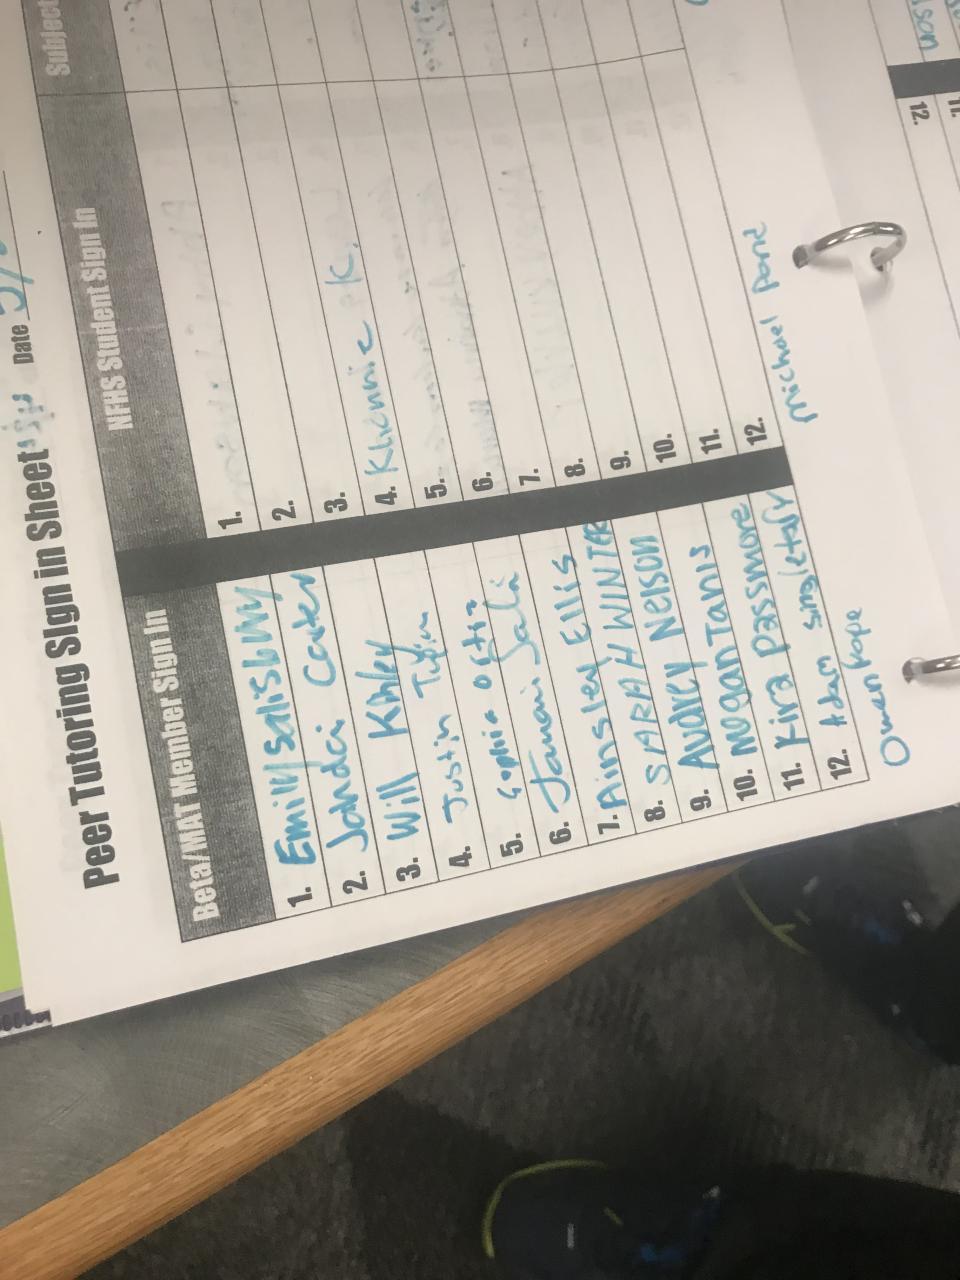 Peer Tutoring Sign in Sheet Date
Beta/MAT Member Sign In NFHS Student Sign In Subject
1. Emily Salisbury 1.
2. Carter 2.
3. Will Kinley 3.
4. Justin 4. Khennie K.
5. Sophia Ortiz 5.
6. 6.
7. Ainsley Ellis 7.
8. SARAH WINTER 8.
9. AUDREY NELSON 9.
10. Megan Tanis 10.
11. Kira Passmore 11.
12. Adam Singletary 12.
Owen Pope Michael Pond
12.
11.